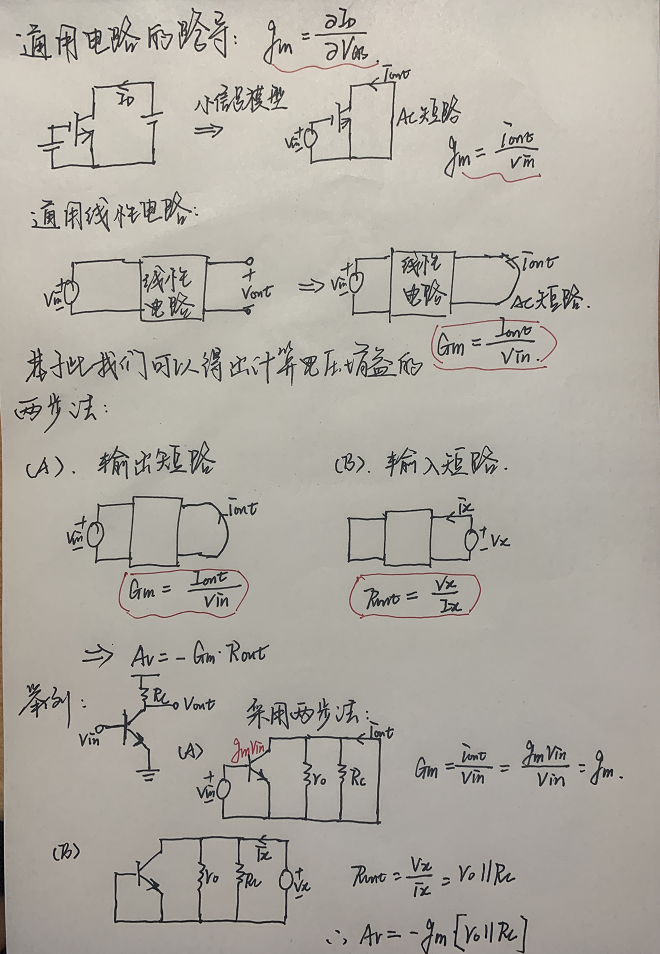 通用电路的跨导: gm = ∂ID/∂VGS
ID
小信号模型
⇒
Vin + - iout AC短路
gm = iout/vin
通用线性电路:
Vin + - 线性电路 + Vout - ⇒ Vin + - 线性电路 iout AC短路.
Gm = Iout/Vin.
基于此我们可以得出计算电压增益的
两步法:
(A). 输出短路
(B). 输入短路.
Vin + - iout
ix + - Vx
Gm = Iout/Vin
Rout = Vx/Ix
⇒ Av = - Gm · Rout
举例: Rc Vout Vin
采用两步法:
(A) gmVin Vin + - ro Rc iout
Gm = iout/Vin = gmVin/Vin = gm.
(B) ro Rc ix + - Vx
Rout = Vx/ix = ro || Rc
∴ Av = - gm [ro || Rc]